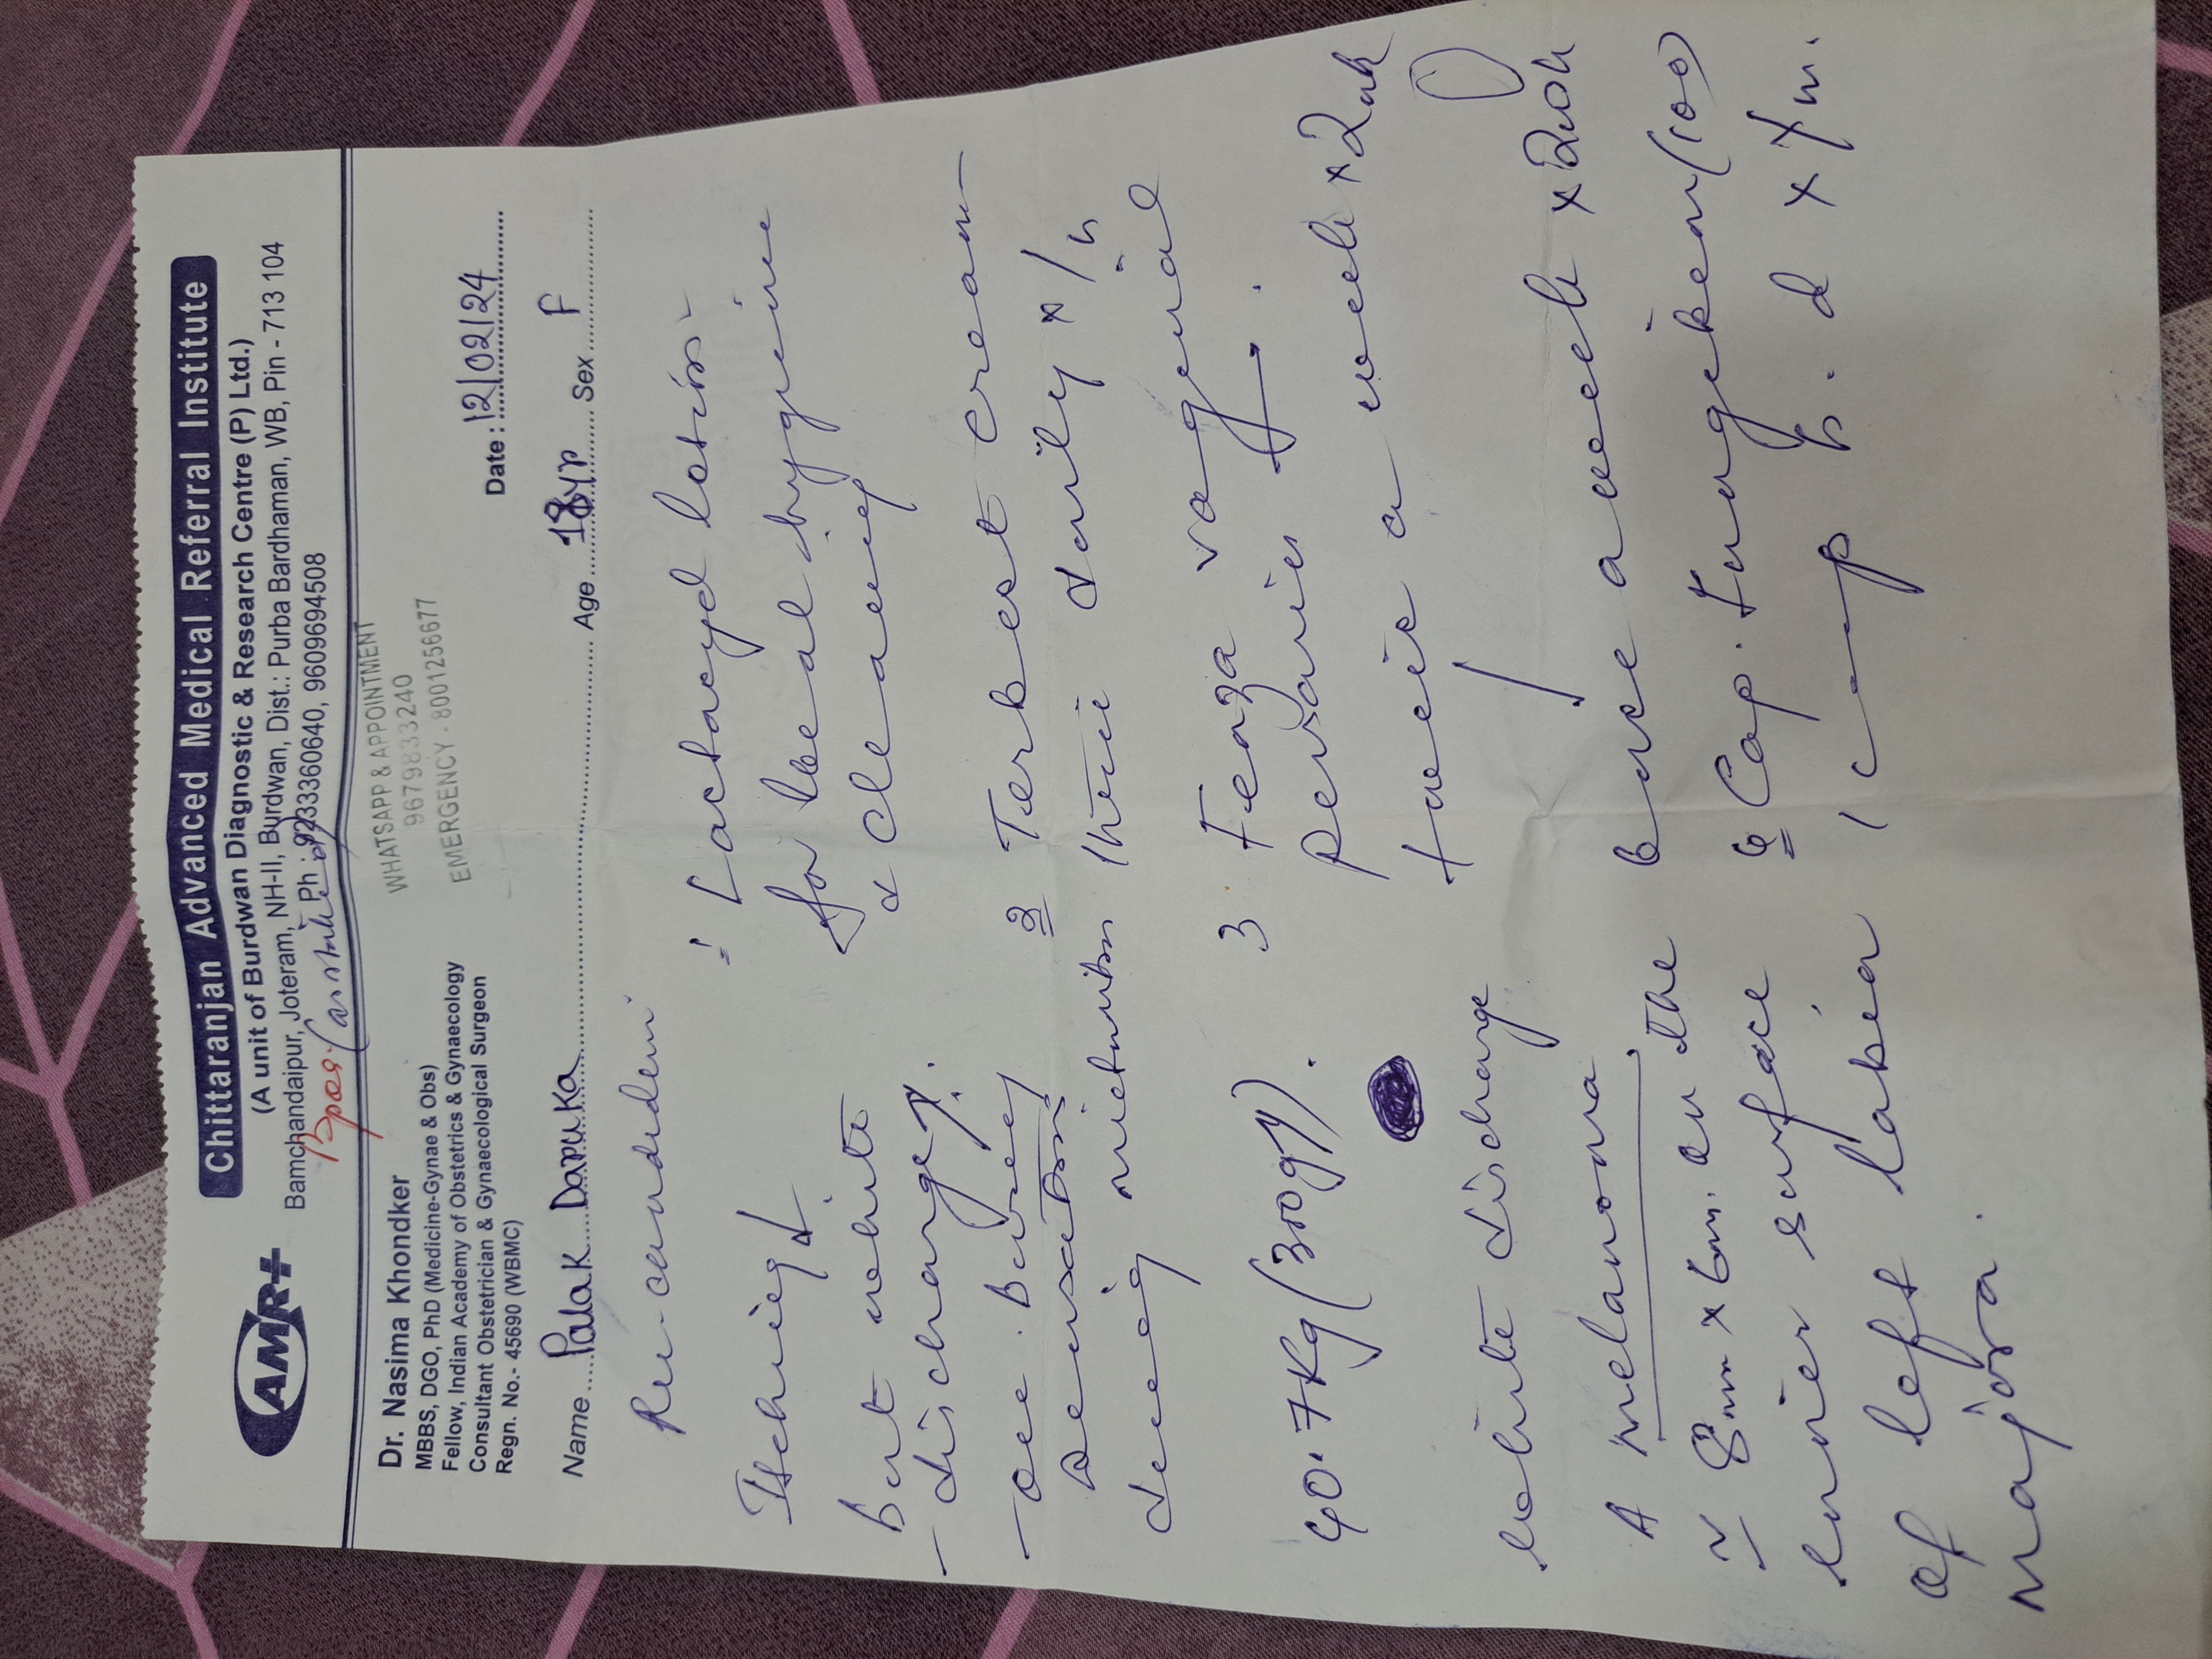 Chittaranjan Advanced Medical Referral Institute
(A unit of Burdwan Diagnostic & Research Centre (P) Ltd.)
Bamchandaipur, Joteram, NH-II, Burdwan, Dist.: Purba Bardhaman, WB, Pin - 713 104
Ph : 9233360640, 9609694508
AMRI
WHATSAPP & APPOINTMENT
9679833240
EMERGENCY - 8001256677
Dr. Nasima Khondker
MBBS, DGO, PhD (Medicine-Gynae & Obs)
Fellow, Indian Academy of Obstetrics & Gynaecology
Consultant Obstetrician & Gynaecological Surgeon
Regn. No.- 45690 (WBMC)
Date : 12/02/24
Name Palak Daruka Age 18yr Sex F
Itching ↓
But white
discharge
- occ. Burning
sensation
micturition
40.7Kg (300gm).
white discharge
A melanoma
~ 8mm x 6m. on the
inner surface
of left labia
majora.
1 Lactacyd lotion
for local hygiene
& cleaning
2 Terbest cream
thrice daily x 1/12
3 Fenza vaginal
pessaries
twice a week x 2wk
↓
once a week x 2wk
Cap. Fungeken (100)
1 cap b.d x 7m.